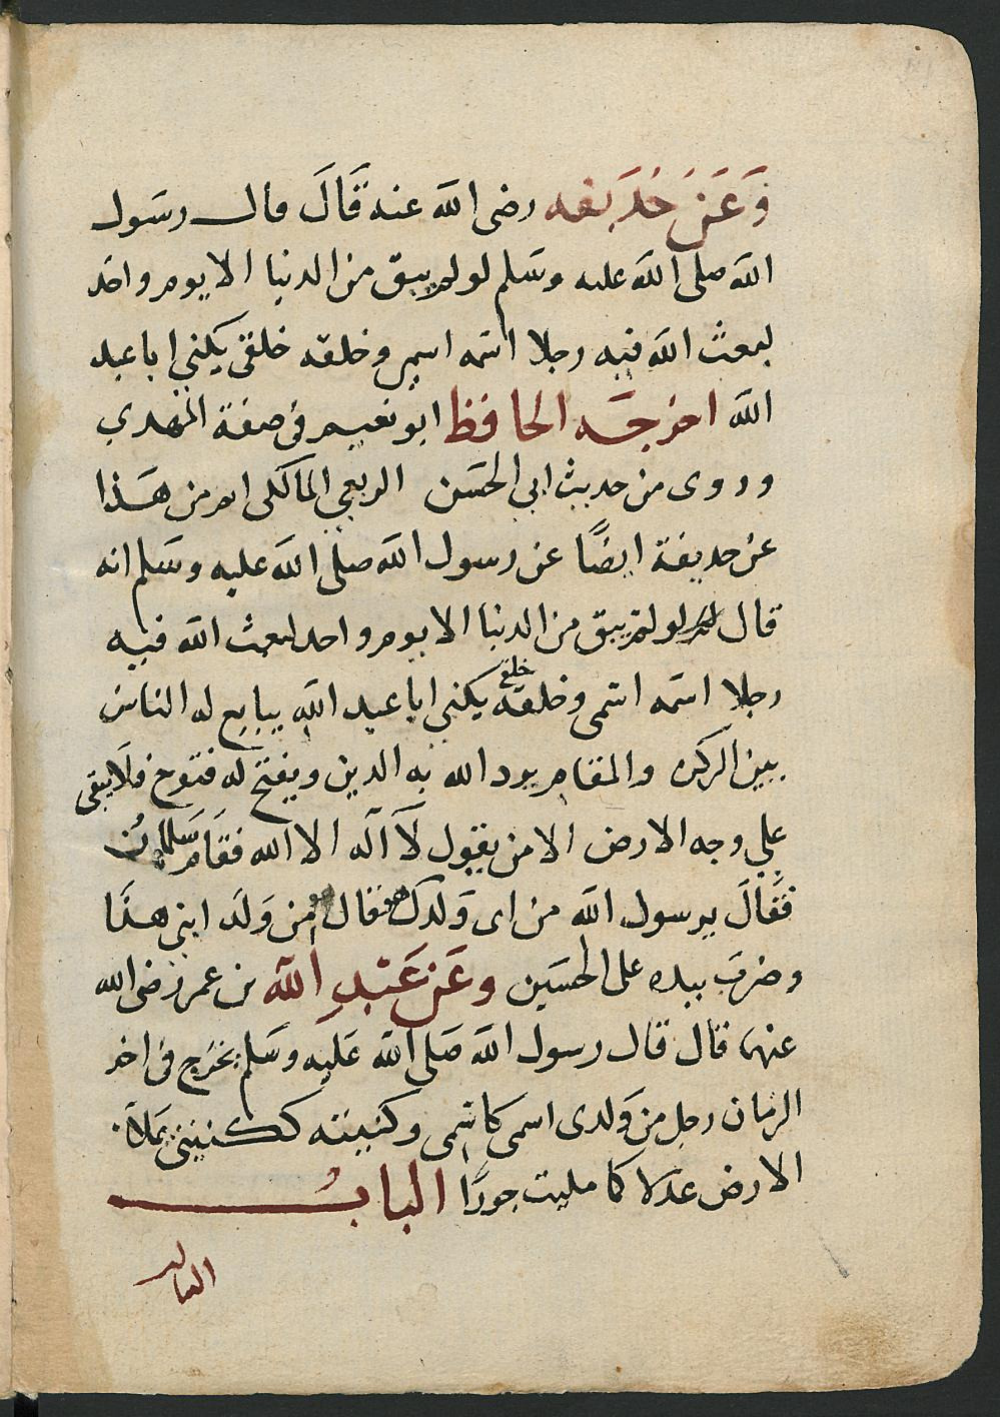 وَعَن حُذَيفه رضى الله عنه قَالَ قال رسَول
الله صلى الله عليه وسَلم لو لم يبق من الدنيا الا يوم واحَد
لبعث الله فيه رجلا اسمه اسمى وخلقه خلقى يكنى ابا عبد
الله اخرجَه الحافظ ابو نعيم فى صفة المهدي
وروى من حديث ابى الحسَن الربعي المالكى اتم من هَذا
عن حديفة ايضًا عن رسول الله صلى الله عليه وسَلم انه
قال لو لم يبق من الدنيا الا يوم واحد لبعث الله فيه
رجلا اسمه اسمى وخلقه خلقى يكنى ابا عبد الله يبايع له الناس
بين الركن والمقام يرد الله به الدين ويفتح له فتوح فلَا يبقى
علي وجه الارض الا من يقول لَا آله الا الله فقَام سَلمان
فَقَالَ يرسول الله من اى وَلدك فقال من وَلَد ابنى هذَا
وضرَب بيده على الحسَين وعَن عَبْدِ الله بن عمر رضى الله
عنهما قال قال رسول الله صَلى الله عَليه وسَلم يخرَج فى اخر
الزمان رجل من وَلدى اسمى كاسمى وكنيته ككنيتى يملَا
الارض عدلا كما مليت جورًا البابُ
الثالث